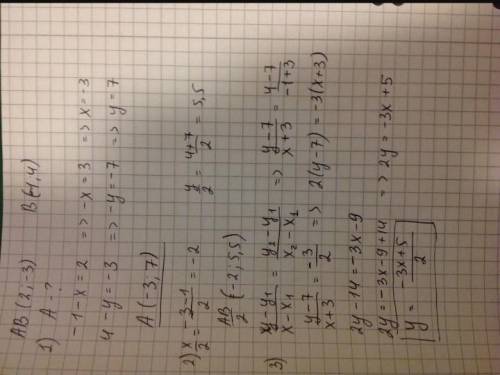 AB (2; -3) B(-1; 4)
1) A - ?
-1 - x = 2 => -x = 3 => x = -3
4 - y = -3 => -y = -7 => y = 7
A (-3; 7)
2) x/2 = (-3-1)/2 = -2 y/2 = (4+7)/2 = 5,5
AB/2 (-2; 5,5)
3) (y-y₁)/(x-x₁) = (y₂-y₁)/(x₂-x₁) => (y-7)/(x+3) = (4-7)/(-1+3)
(y-7)/(x+3) = -3/2 => 2(y-7) = -3(x+3)
2y - 14 = -3x - 9
2y = -3x - 9 + 14 => 2y = -3x + 5
y = (-3x+5)/2